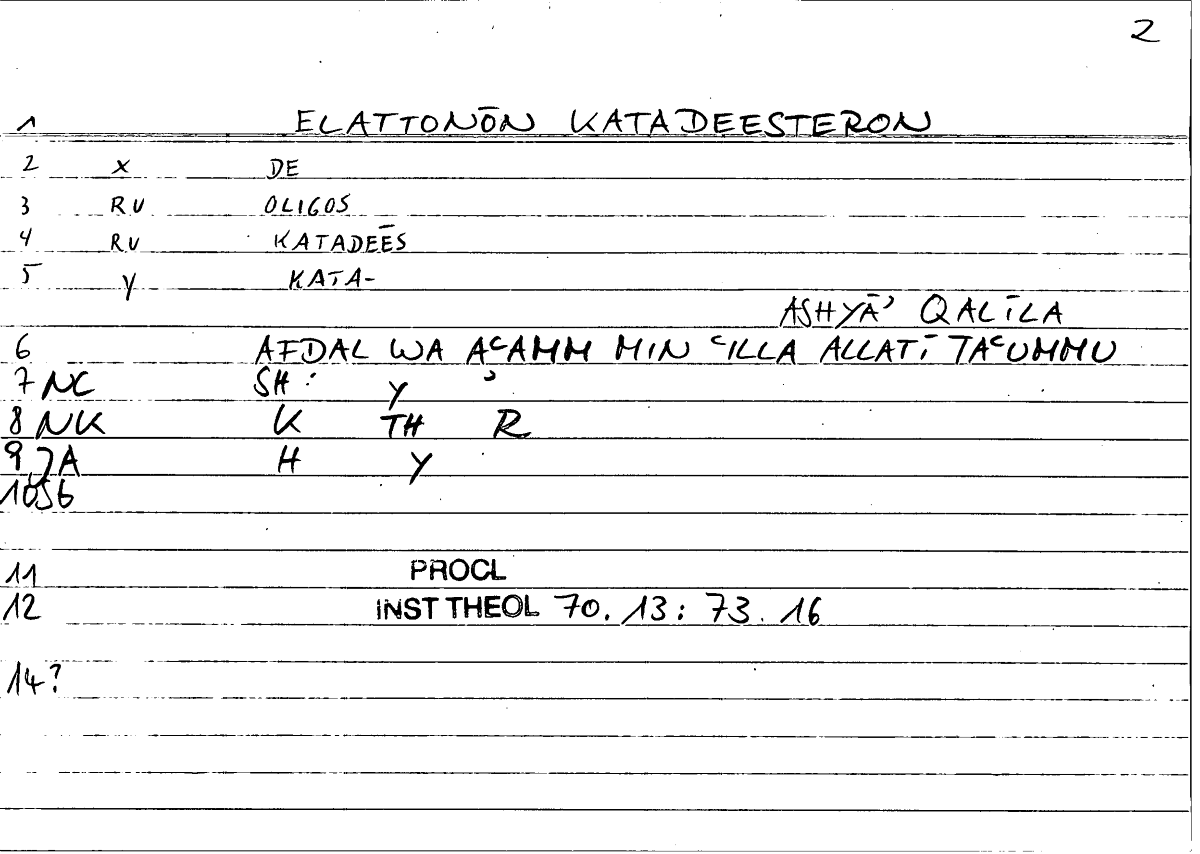 2
1 ELATTONŌN KATADEESTERON
2 X DE
3 RU OLIGOS
4 RU KATADEĒS
5 Y KATA-
ASHYĀʾ QALĪLA
6 AFDAL WA AʿAMM MIN ʿILLA ALLATĪ TAʿUMMU
7 NC SH: Y ʾ
8 NK K TH R
9 JA H Y
10 56
11 PROCL
12 INST THEOL 70. 13: 73. 16
14?